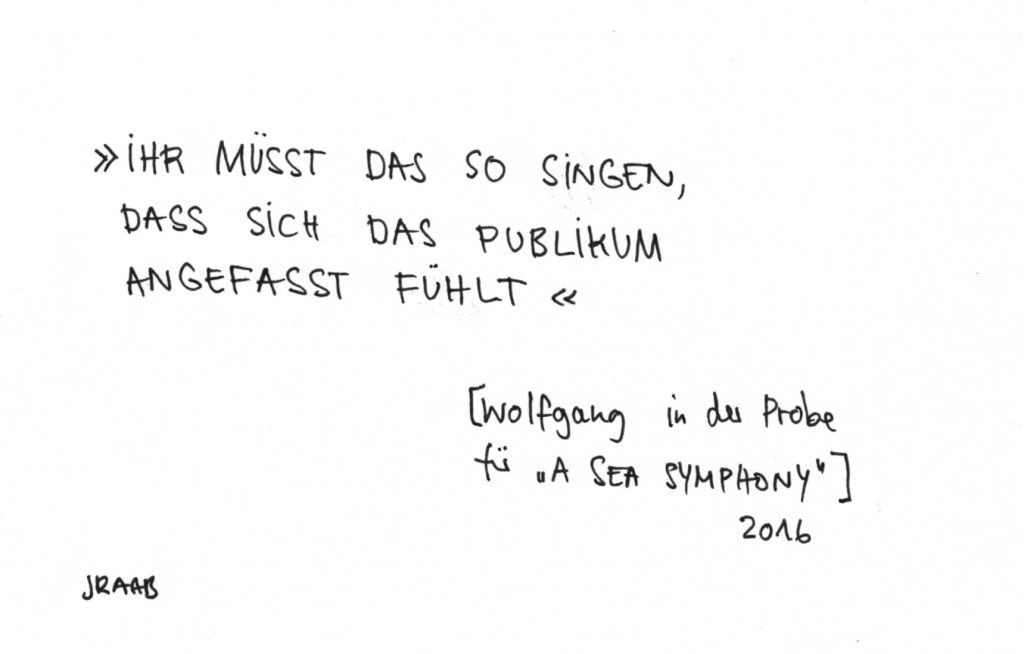 »IHR MÜSST DAS SO SINGEN,
DASS SICH DAS PUBLIKUM
ANGEFASST FÜHLT «
[Wolfgang in der Probe
für „A SEA SYMPHONY“]
2016
JRAAB